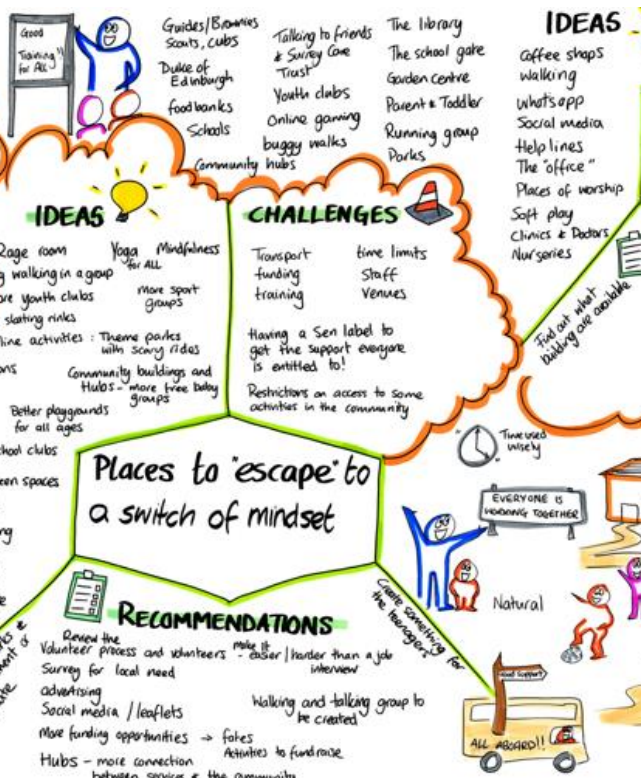 Good
Training!!
for All
Guides/Brownies
Scouts, cubs
Duke of
Edinburgh
foodbanks
Schools
Community hubs
Talking to friends
& Surrey Care
Trust
Youth clubs
Online gaming
buggy walks
The library
The school gate
Garden centre
Parent & Toddler
Running group
Parks
IDEAS
Coffee shops
walking
whatsapp
Social media
Help lines
The "office"
Places of worship
Soft play
Clinics & Doctors
Nurseries
Find out what
building are available
IDEAS
Rage room
walking in a group
youth clubs
skating rinks
activities : Theme parks
with scary rides
Yoga Mindfulness
for ALL
more sport
groups
Community buildings and
Hubs - more free baby
groups
Better playgrounds
for all ages
clubs
spaces
CHALLENGES
Transport
funding
training
time limits
Staff
Venues
Having a Sen label to
get the support everyone
is entitled to!
Restrictions on access to some
activities in the community
Places to "escape" to
a switch of mindset
Time used
wisely
EVERYONE IS
WORKING TOGETHER
Natural
Create something for
the teenagers
ALL ABOARD!!
RECOMMENDATIONS
Review the
Volunteer process and volunteers - make it easier / harder than a job
interview
Survey for local need
advertising
Social media / leaflets
More funding opportunities → fetes
Activities to fundraise
Walking and talking group to
be created
Hubs - more connection
between services & the community